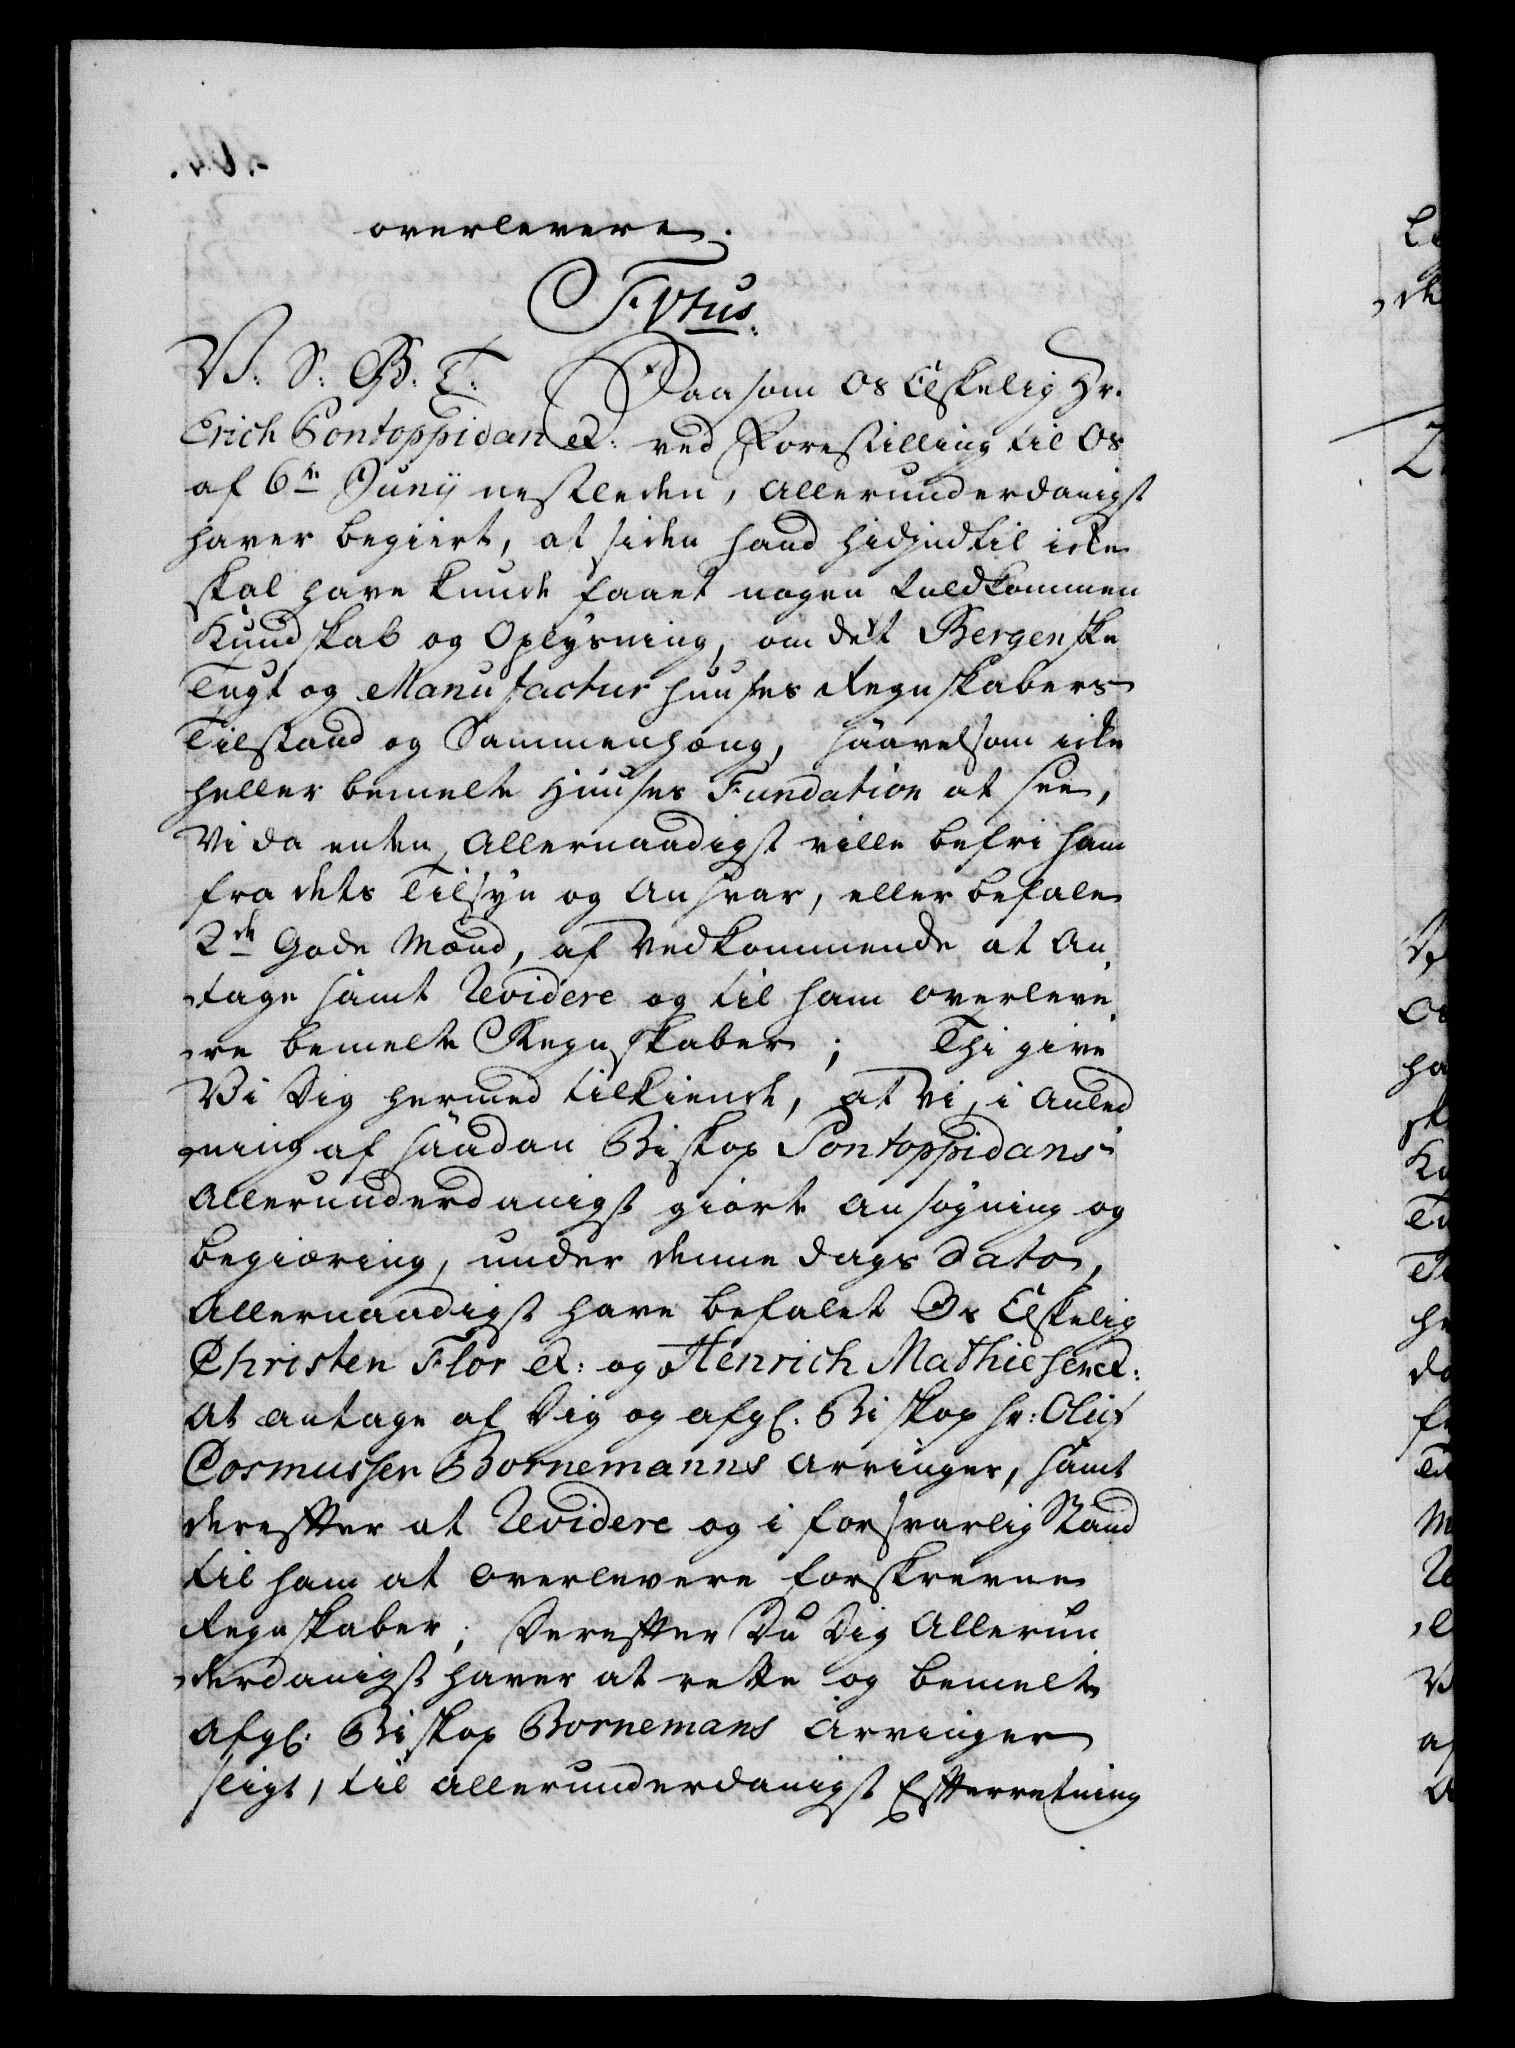 overlevere.
F. Vtus.
V: S: G: T: Saasom Os Elskelig Hr.
Erich Pontoppidan etc: ved Forestilling til Os
af 6te Junij nestleden, Allerunderdanigst
haver begiert, at siden hand hidjndtil icke
skal have kunde faaet nogen fuldkommen
Kundskab og Oplysning, om det Bergenske
Tugt og Manufactur huuses Regnskabers
Tilstand og Sammenhæng, saavelsom icke
heller bemelte Huuses Fundation at see,
Vi da enten Allernaadigst ville befri ham
fra dets Tilsyn og Ansvar, eller befale
2de Gode Mænd, af Vedkommende at An-
tage samt Revidere og til ham overleve-
re bemelte Regnskaber; Thi give
Vi Dig hermed tilkiende, at Vi, i Anled-
ning af saadan Biskop Pontoppidans
Allerunderdanigst giorte Ansøgning og
begiæring, under denne Dags Dato,
Allernaadigst have befalet Os Elskelig
Christen Flor etc: og Henrich Mathiesen etc:
At antage af Dig og afg: Biskop Hr: Oluf
Cosmussen Bornemanns Arvinger, samt
derefter at Revidere og i forsvarlig Stand
til ham at overlevere forskrevne
Regnskaber; Derefter Du Dig Allerun-
derdanigst haver at rette og bemelte
Afg: Biskop Bornemans Arvinger
sligt, til allerunderdanigst Efterretning